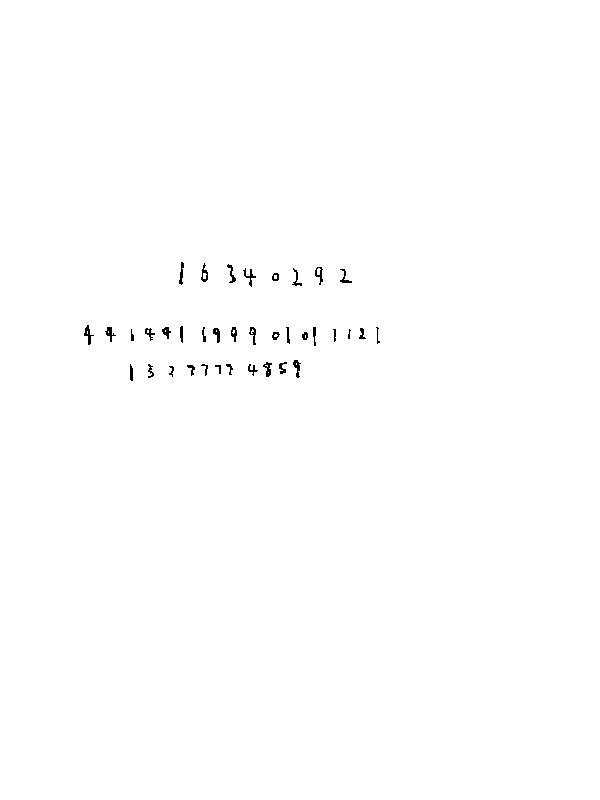 16340292
441441199901011121
13277774859